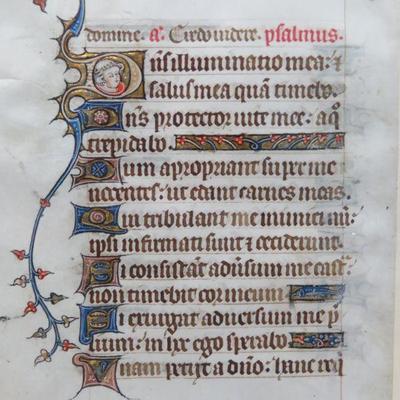 domine. a. Credo videre. psalmus.
Dns illuminatio mea: &
salus mea quã timebo.
Dns protector vite mee: a q°
trepidabo.
Dum apropriant super me
nocentes: ut edant carnes meas.
Qui tribulant me inimici mi:
ipsi infirmati sunt & ceciderunt.
Si consistãt adũsum me cast̃:
non timebit cor meum
Si exurgat adversum me p̃
lium: in hoc ego sperabo.
Unam petii a dño: hanc req̃